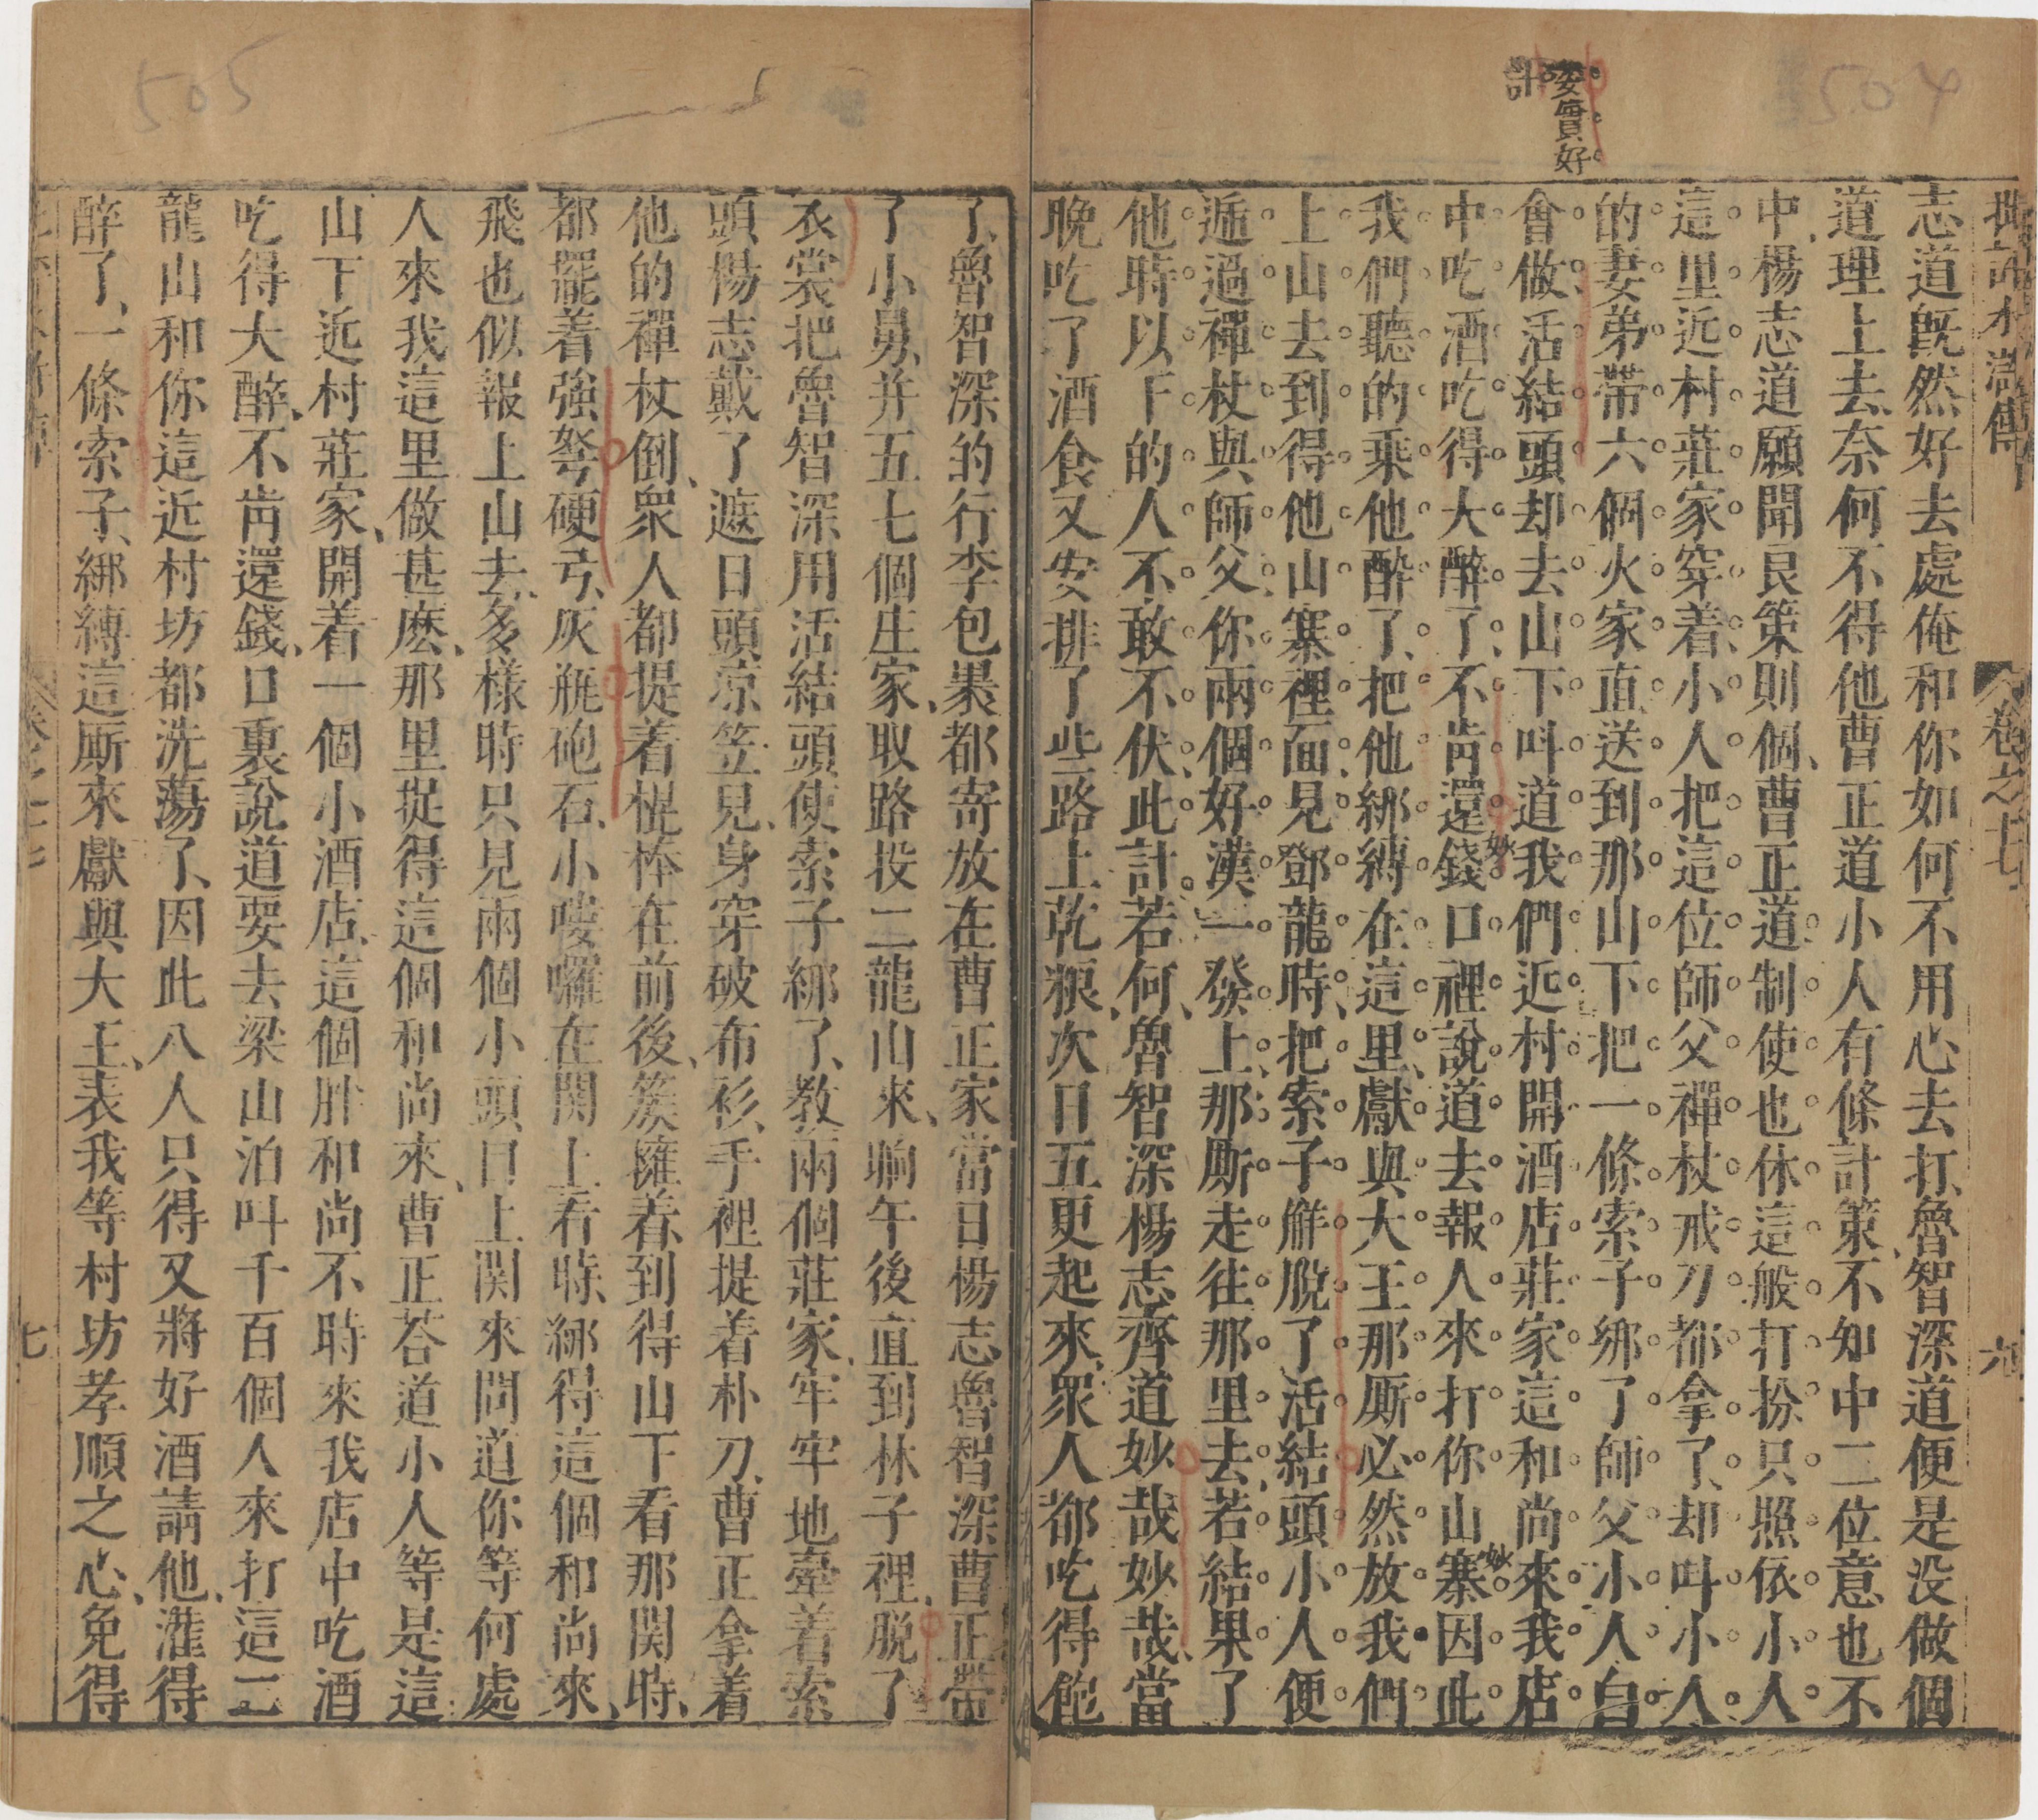 504
安實好
計
水滸傳
卷之十七
六
志道既然好去處俺和你如何不用心去打魯智深道便是没做個
道理上去奈何不得他曹正道小人有條計策不知中二位意也不
中楊志道願聞良策則個曹正道制使也休這般打扮只照依小人
這里近村莊家穿着小人把這位師父禪杖戒刀都拿了却呌小人
的妻弟帶六個火家直送到那山下把一條索子綁了師父小人自
會做活結頭却去山下呌道我們近村開酒店莊家這和尚來我店
中吃酒吃得大醉了不肯還錢口裡說道去報人來打你山寨因此
妙
妙
我們聽的乘他醉了把他綁縛在這里獻與大王那厮必然放我們
上山去到得他山寨裡面見鄧龍時把索子觧脫了活結頭小人便
遞過禪杖與師父你兩個好漢一發上那厮走往那里去若結果了
他時以下的人不敢不伏此計若何魯智深楊志齊道妙哉妙哉當
晚吃了酒食又安排了些路上乾粮次日五更起來眾人都吃得飽
505
了魯智深的行李包裹都寄放在曹正家當日楊志魯智深曹正帶
了小舅并五七個庄家取路投二龍山來晌午後直到林子裡脫了
衣裳把魯智深用活結頭使索子綁了教兩個莊家牢牢地牽着索
頭楊志戴了遮日頭凉笠見身穿破布衫手裡提着朴刀曹正拿着
他的禪杖倒眾人都提着棍棒在前後簇擁着到得山下看那関時
都擺着強弩硬弓灰瓶砲石小嘍囉在関上看時綁得這個和尚來
飛也似報上山去多樣時只見兩個小頭目上関來問道你等何處
人來我這里做甚麽那里捉得這個和尚來曹正荅道小人等是這
山下近村莊家開着一個小酒店這個胖和尚不時來我店中吃酒
吃得大醉不肯還錢口裏說道要去梁山泊呌千百個人來打這二
龍山和你這近村坊都洗蕩了因此八人只得又將好酒請他灌得
醉了一條索子綁縛這厮來獻與大王表我等村坊孝順之心免得
七